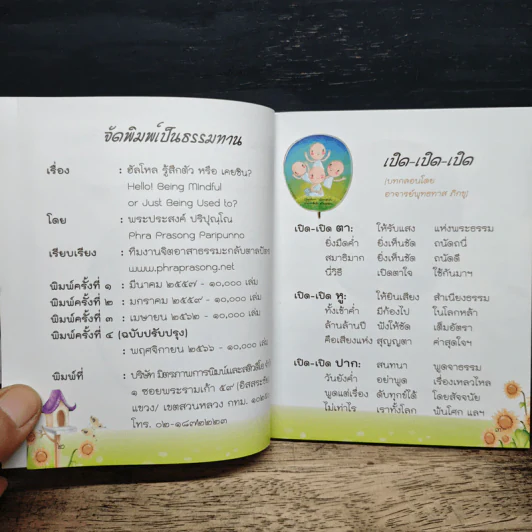 จัดพิมพ์เป็นธรรมทาน
เรื่อง : ฮัลโหล รู้สึกตัว หรือ เคยชิน?
Hello! Being Mindful
or Just Being Used to?
โดย : พระประสงค์ ปริปุณฺโณ
Phra Prasong Paripunno
เรียบเรียง : ทีมงานจิตอาสาธรรมะกลับตาลปัตร
www.phraprasong.net
พิมพ์ครั้งที่ ๑ : มีนาคม ๒๕๕๙ - ๑๐,๐๐๐ เล่ม
พิมพ์ครั้งที่ ๒ : มกราคม ๒๕๕๙ - ๑๐,๐๐๐ เล่ม
พิมพ์ครั้งที่ ๓ : เมษายน ๒๕๖๒ - ๑๐,๐๐๐ เล่ม
พิมพ์ครั้งที่ ๔ (ฉบับปรับปรุง)
: พฤศจิกายน ๒๕๖๖ - ๑๐,๐๐๐ เล่ม
พิมพ์ที่ : บริษัท มิตรภาพการพิมพ์และสติวดิโอ
๑ ซอยพระรามเก้า ๕๙
แขวง/ เขตสวนหลวง กทม.
โทร. ๐๒-๑๘๗๒๒๒๓
เปิด-เปิด-เปิด
(บทกลอนโดย
อาจารย์พุทธทาส ภิกขุ)
เปิด-เปิด ตา: ให้รับแสง แห่งพระธรรม
ยิ่งมืดค่ำ ยิ่งเห็นชัด ถนัดถนี่
สมาธิมาก ยิ่งเห็นชัด ถนัดดี
นี่วิธี เปิดตาใจ ใช้กันมาฯ
เปิด-เปิด หู: ให้ยินเสียง สำเนียงธรรม
ทั้งเช้าค่ำ มีก้องไป ในโลกหล้า
ล้านล้านปี ฟังให้ชัด เต็มอัตรา
คือเสียงแห่ง สุญญตา ค่าสุดใจฯ
เปิด-เปิด ปาก: สนทนา พูดจาธรรม
วันยังค่ำ อย่าพูด เรื่องเหลวไหล
พูดแต่เรื่อง ดับทุกข์ได้ โดยสัจจนัย
ไม่เท่าไร เราทั้งโลก พ้นโศก แลฯ